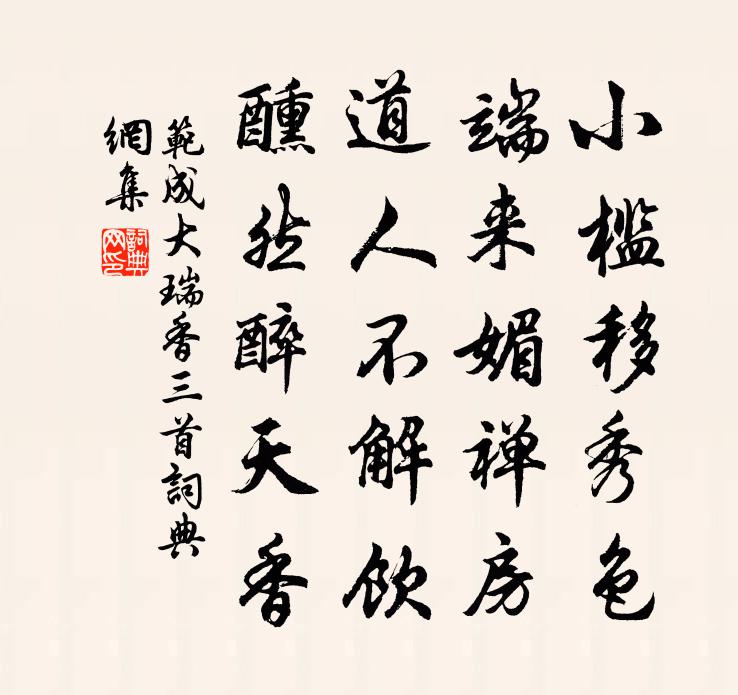 小槛移秀色
端来媚禅房
道人不解飲
醺然醉天香
範成大瑞香三首詞典
網集
詞典
网印